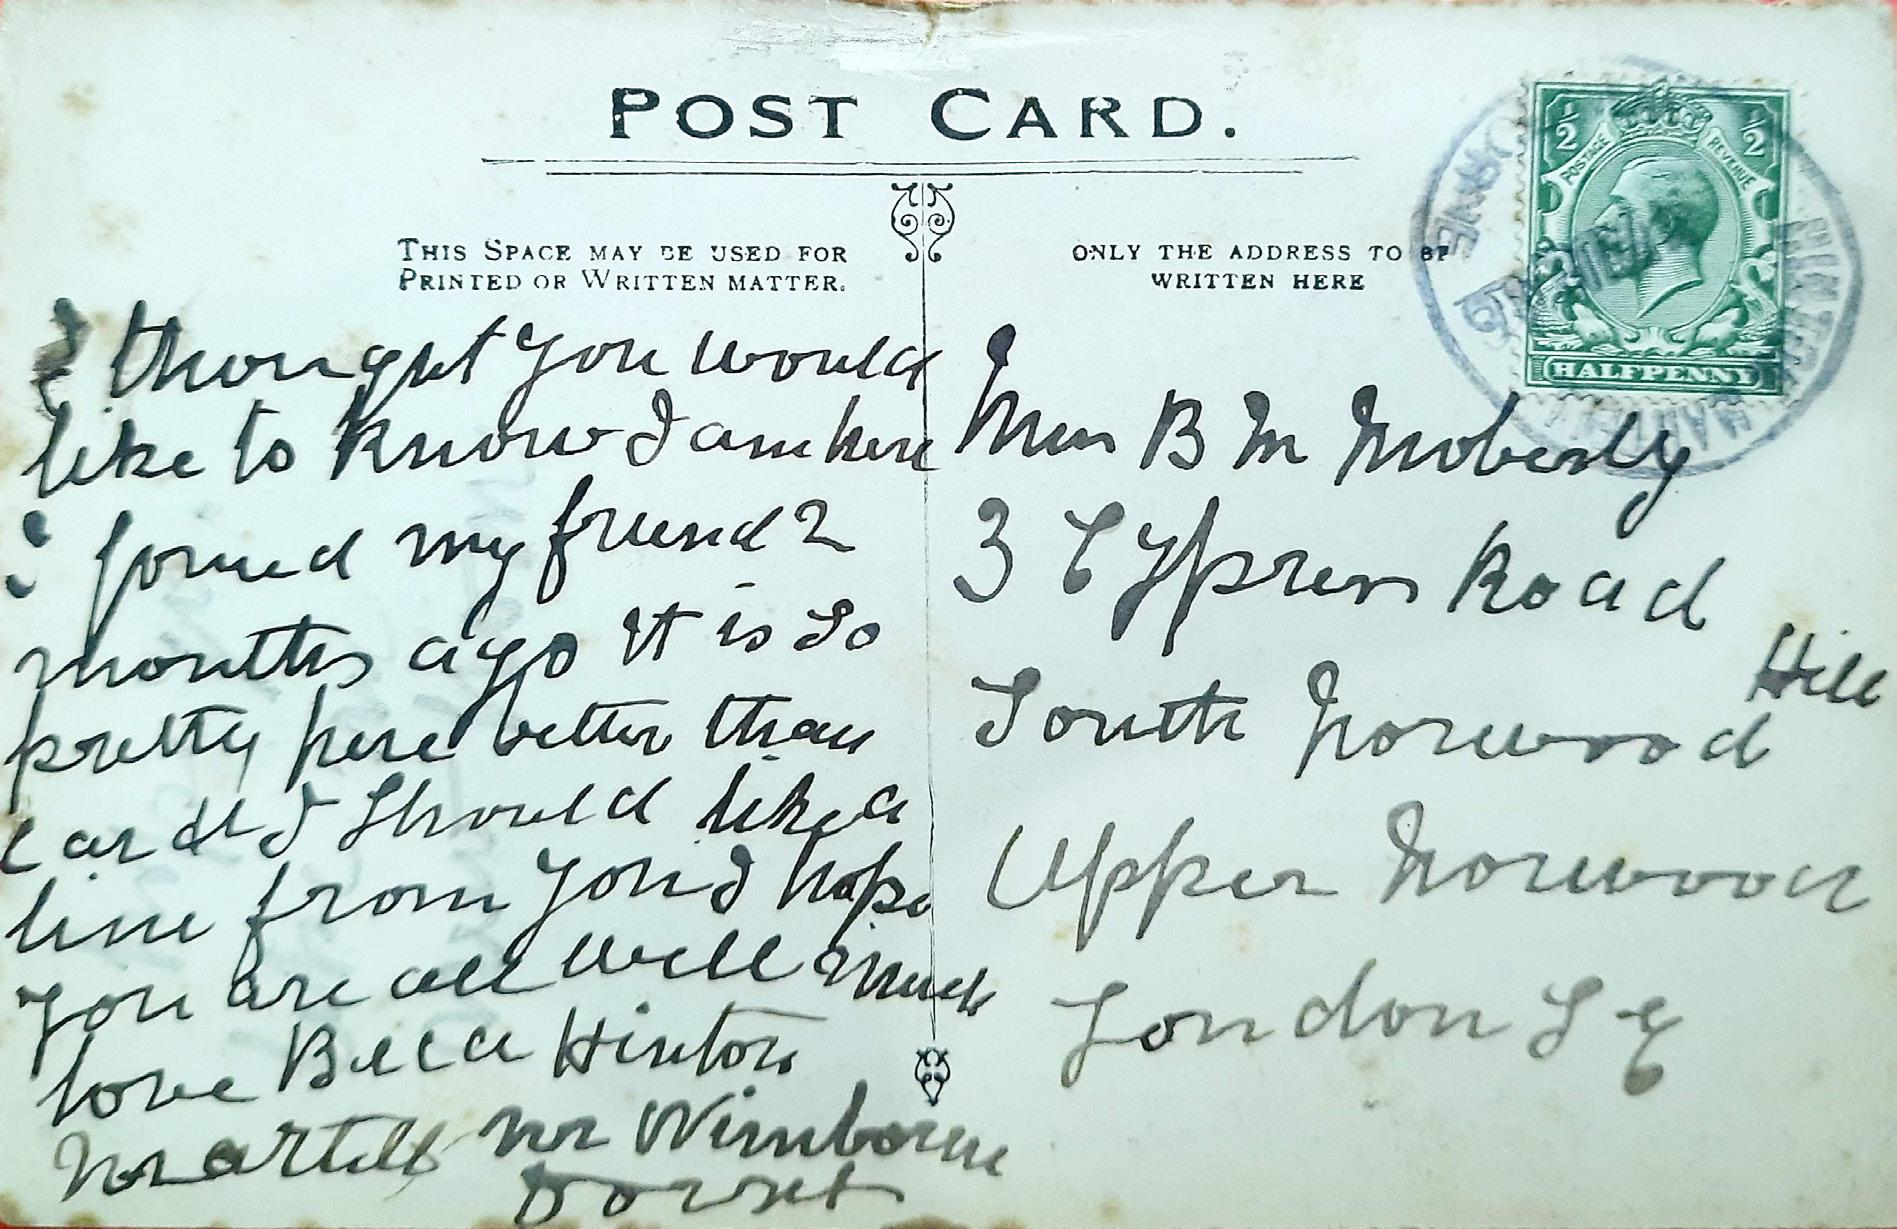 POST CARD.
THIS SPACE MAY BE USED FOR
PRINTED OR WRITTEN MATTER.
ONLY THE ADDRESS TO BE
WRITTEN HERE
1/2 POSTAGE REVENUE 1/2
HALFPENNY
I thought you would
like to know I am here
I joined my friend 2
months ago It is so
pretty here better than
card I should like a
line from you I hope
you are all well Much
love Hinton
nr Wimborne
Dorset
Miss B M Moberly
3 Cypress Road
Hill
South Norwood
Upper Norwood
London S E